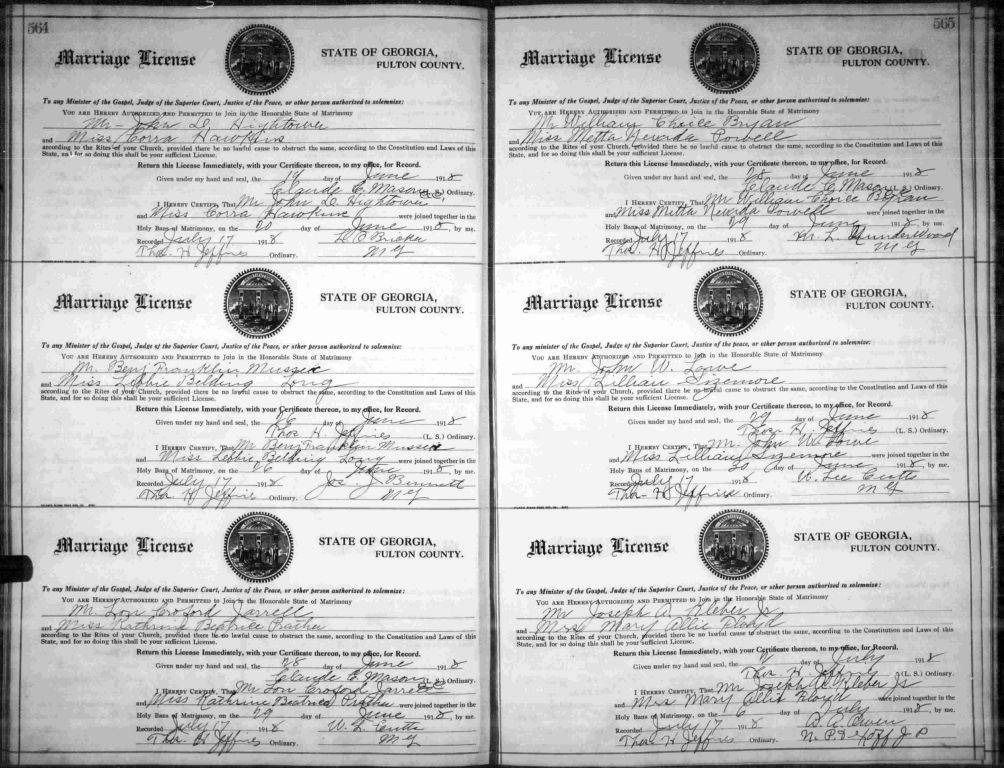 564
Marriage License
STATE OF GEORGIA,
FULTON COUNTY.
To any Minister of the Gospel, Judge of the Superior Court, Justice of the Peace, or other person authorized to solemnize:
YOU ARE HEREBY AUTHORIZED AND PERMITTED to Join in the Honorable State of Matrimony
Mr John D. Hightower
and Miss Corra Hawkins
according to the Rites of your Church, provided there be no lawful cause to obstruct the same, according to the Constitution and Laws of this
State, and for so doing this shall be your sufficient License.
Return this License Immediately, with your Certificate thereon, to my office, for Record.
Given under my hand and seal, the 19 day of June 1918
Claude C. Mason (L. S.) Ordinary.
I HEREBY CERTIFY, That Mr John D. Hightower
and Miss Corra Hawkins were joined together in the
Holy Bans of Matrimony, on the 20 day of June 1918, by me.
Recorded July 17 1918
Tho. H. Jeffries Ordinary. M G
Marriage License
STATE OF GEORGIA,
FULTON COUNTY.
To any Minister of the Gospel, Judge of the Superior Court, Justice of the Peace, or other person authorized to solemnize:
YOU ARE HEREBY AUTHORIZED AND PERMITTED to Join in the Honorable State of Matrimony
Mr. Benj Franklin
and Miss Lebbie Belding Long
according to the Rites of your Church, provided there be no lawful cause to obstruct the same, according to the Constitution and Laws of this
State, and for so doing this shall be your sufficient License.
Return this License Immediately, with your Certificate thereon, to my office, for Record.
Given under my hand and seal, the 26 day of June 1918
Thos. H. Jeffries (L. S.) Ordinary.
I HEREBY CERTIFY, That Mr Benj Franklin
and Miss Lebbie Belding Long were joined together in the
Holy Bans of Matrimony, on the 26 day of June 1918, by me.
Recorded July 17 1918 Jos. J. Bennett
Tho. H. Jeffries Ordinary. M G
Marriage License
STATE OF GEORGIA,
FULTON COUNTY.
To any Minister of the Gospel, Judge of the Superior Court, Justice of the Peace, or other person authorized to solemnize:
YOU ARE HEREBY AUTHORIZED AND PERMITTED to Join in the Honorable State of Matrimony
Mr. Lon Croford Jarrell
and Miss Kathrine Beatrice
according to the Rites of your Church, provided there be no lawful cause to obstruct the same, according to the Constitution and Laws of this
State, and for so doing this shall be your sufficient License.
Return this License Immediately, with your Certificate thereon, to my office, for Record.
Given under my hand and seal, the 28 day of June 1918
Claude C. Mason Ordinary.
I HEREBY CERTIFY, That Mr Lon Croford Jarrell
and Miss Kathrine Beatrice were joined together in the
Holy Bans of Matrimony, on the 29 day of June 1918, by me.
Recorded July 17 1918 W. L. Cutts
Tho. H. Jeffries Ordinary. M G
565
Marriage License
STATE OF GEORGIA,
FULTON COUNTY.
To any Minister of the Gospel, Judge of the Superior Court, Justice of the Peace, or other person authorized to solemnize:
YOU ARE HEREBY AUTHORIZED AND PERMITTED to Join in the Honorable State of Matrimony
Mr William Choice Bryan
and Miss Metta Nevada Powell
according to the Rites of your Church, provided there be no lawful cause to obstruct the same, according to the Constitution and Laws of this
State, and for so doing this shall be your sufficient License.
Return this License Immediately, with your Certificate thereon, to my office, for Record.
Given under my hand and seal, the 28 day of June 1918
Claude C. Mason (L. S.) Ordinary.
I HEREBY CERTIFY, That Mr William Choice Bryan
and Miss Metta Nevada Powell were joined together in the
Holy Bans of Matrimony, on the 29 day of June 1918, by me.
Recorded July 17 1918 M. L. Underwood
Tho. H. Jeffries Ordinary. M G
Marriage License
STATE OF GEORGIA,
FULTON COUNTY.
To any minister of the Gospel, Judge of the Superior Court, Justice of the Peace, or other person authorized to solemnize:
YOU ARE HEREBY AUTHORIZED AND PERMITTED to Join in the Honorable State of Matrimony
Mr. John W. Lowe
and Miss Lillian Sizemore
according to the Rites of your Church, provided there be no lawful cause to obstruct the same, according to the Constitution and Laws of this
State, and for so doing this shall be your sufficient License.
Return this License Immediately, with your Certificate thereon, to my office, for Record.
Given under my hand and seal, the 29 day of June 1918
Thos. H. Jeffries (L. S.) Ordinary.
I HEREBY CERTIFY, That Mr. John W. Lowe
and Miss Lillian Sizemore were joined together in the
Holy Bans of Matrimony, on the 30 day of June 1918, by me.
Recorded July 17 1918 W. Lee Cutts
Tho. H. Jeffries Ordinary. M G
Marriage License
STATE OF GEORGIA,
FULTON COUNTY.
To any Minister of the Gospel, Judge of the Superior Court, Justice of the Peace, or other person authorized to solemnize:
YOU ARE HEREBY AUTHORIZED AND PERMITTED to Join in the Honorable State of Matrimony
Mr. Joseph A. Kleber Jr
and Mrs Mary Ollie Floyd
according to the Rites of your Church, provided there be no lawful cause to obstruct the same, according to the Constitution and Laws of this
State, and for so doing this shall be your sufficient License.
Return this License Immediately, with your Certificate thereon, to my office, for Record.
Given under my hand and seal, the 2 day of July 1918
Thos. H. Jeffries (L. S.) Ordinary.
I HEREBY CERTIFY, That Mr Joseph A. Kleber Jr
and Mrs Mary Ollie Floyd were joined together in the
Holy Bans of Matrimony, on the 6 day of July 1918, by me.
Recorded July 17 1918 Owen
Tho. H. Jeffries Ordinary. J P